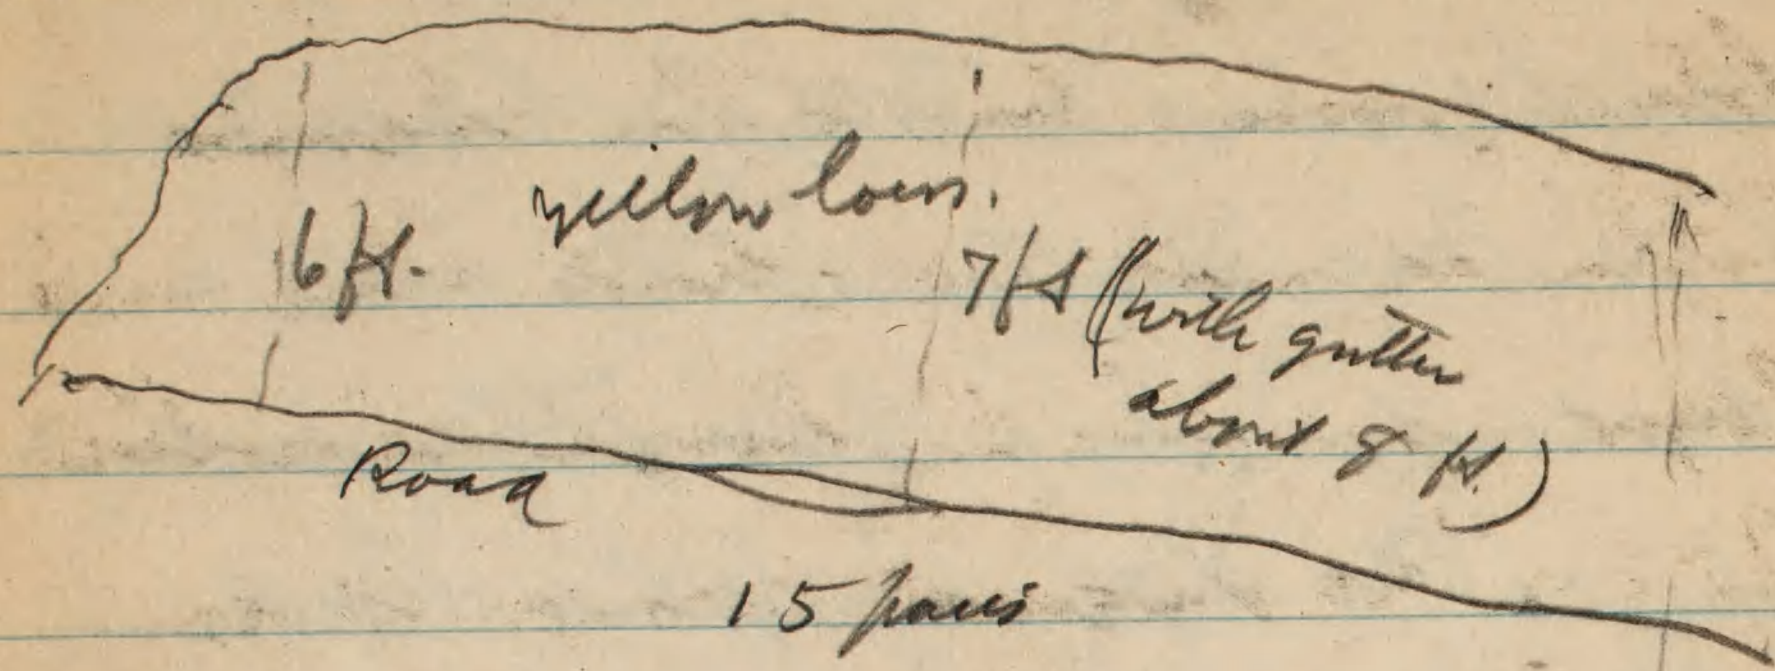 yellow loess.
6 ft.
7 ft (with gutter
about 8 ft.)
Road
15 paces